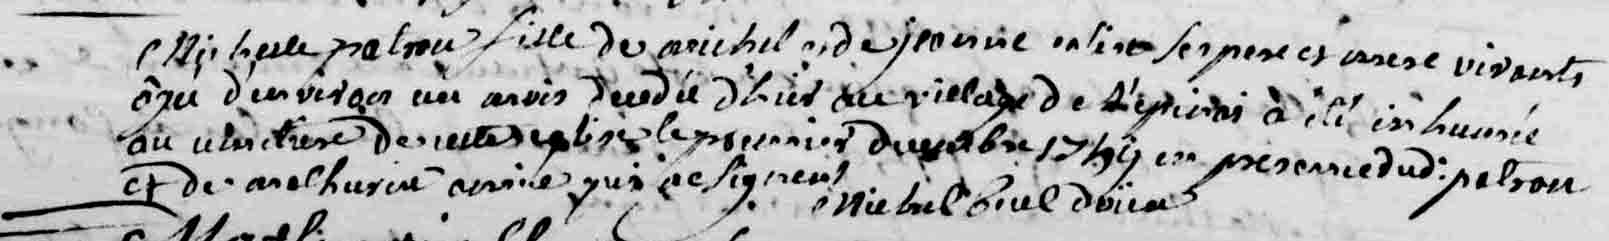 Michelle patrou fille de michel et de jeanne ses pere et mere vivants
âgé d'environ un mois decedé d'hier au village de L'epinai a été inhumée
au cimetiere de cette eglise le premier decembre 1749 en presence dud: patrou
et de mathurin qui ne signent Michel doüen